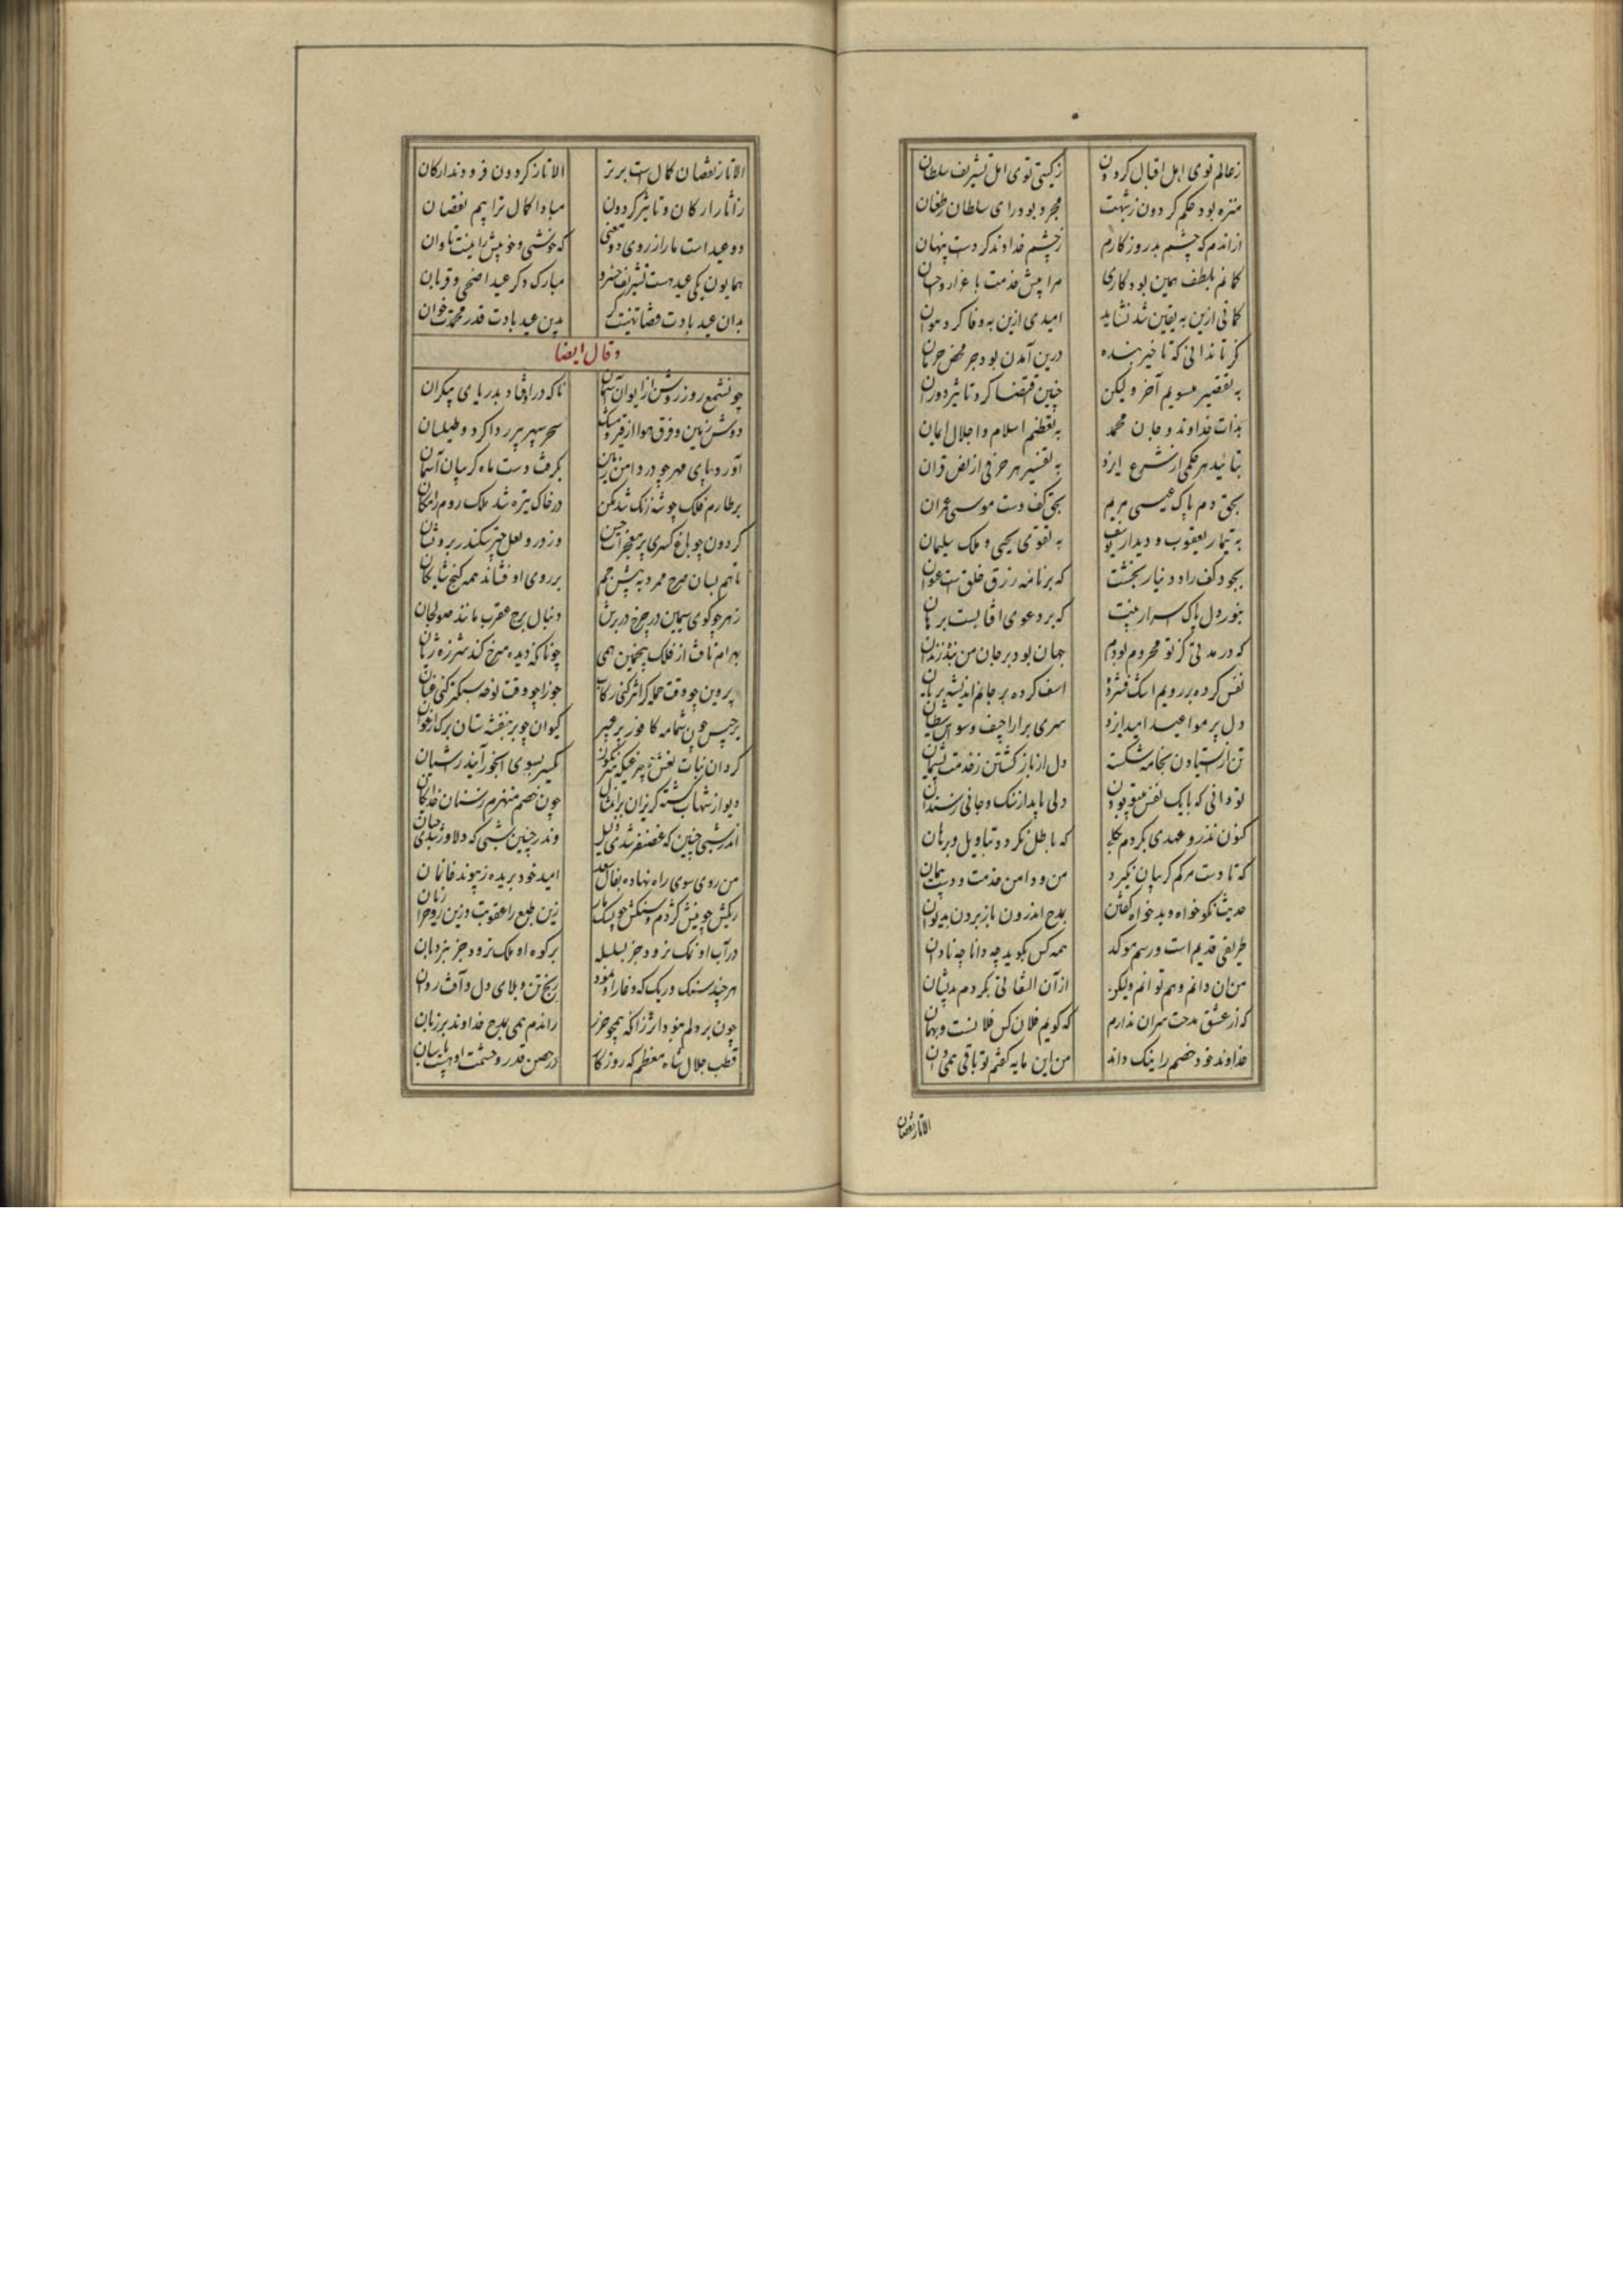 زعالم توی اهل اقبال گردون زگیتی توی اهل تشریف سلطان
منزه بود حکم گردون زشبهت مجرد بود رای سلطان زطغیان
ازاندم که چشم بد روزکارم زچشم خداوند کردست پنهان
کمانم بلطف همین بود کاری مرا پیش خدمت
کمانی ازین به یقین شد نشاید امیدی ازین به وفا کرد نتوان
کر تا ندانی که تاخیر بنده درین آمدن بود جز محض حرمان
به تقصیر منسویم آخر ولیکن چنین اقتضا کرد تاثیر دوران
بذات خداوند و جان محمد به تعظیم اسلام و اجلال ایمان
بتائید هر حکمی از شرع ایزد به تفسیر هر حرفی از نص قران
بحق دم پاک عیسی مریم بحق کف دست موسی عمران
به تیمار یعقوب و دیدار یوسف به تقوی یحیی و ملک سلیمان
بجود کف راد دینار بخشت که بر نامه رزق خلق ست عنوان
بنور دل پاک اسرار بینت که بر دعوی افتابست برهان
که در مدتی کز تو محروم بودم جهان بود بر جان من بند زندان
نفس کرده بر رویم اشک فسرده اسف کرده بر جانم اندیشه بریان
دل پر مواعید امید ایزد سری پر اراجیف وسواس شیطان
تن از ایستادن بخامه شکسته دل از باز کشتن زخدمت پشیمان
تو دانی که بایک نفس میتوبودن دلی باید از سنگ و جانی زسندان
کنون نذر و عهدی بکردم که باطل نکردد بتاویل و برهان
که تا دست مرگم کریبان نکیرد من و دامن خدمت و دست پیمان
حدیث نکو خواه و بد خواه گفتن بمدح اندرون باز بردن بدیوان
طریقی قدیم است و رسم موکد همه کس بگوید چه دانا چه نادان
من ان دانم و هم توانم ولیکن از آن التفاتی بکردم بدیشان
که از عشق مدحت سر آن ندارم که گویم فلان کس فلانست و بهمان
خداوند خود خصم را نیک داند من این مایه گفتم تو باقی همی دان
الا تا زنقصان
الا تا زنقصان کمال ست برتر الا تا زگردون فرودند ارکان
زآثار ارکان و تاثیر گردون مبادا کمال ترا بیم نقصان
دو عید است مارا زروی دو معنی که خوشی و خوبیش را نیست تاوان
همایون یکی عید هست تشریف خسرو مبارک دگر عید اضحی و قربان
بدان عید بادت قضا تهنیت گر بدین عید بادت قدر محمدت خوان
وقال ایضا
چو شمع روز روشن از ایوان آسمان ناگه در اوفتاد بدریای بیکران
دوش زمین و فرق هوا از قیر و مشک سحر سپهر پیر ردا کرد و طیلسان
آورد پای مهر چو در دامن زمین بگرفت دست ماه گریبان آسمان
بر طارم فلک چو شه زنگ شد مکین در خاک تیره شد ملک روم را مکان
گردون چو باغ کسری پر معجزات حسن وز در و لعل چتر سکندر برو نشان
ناهید لسان صرح ممرد به پیش جم بر روی او فشانده همه گنج شایکان
زهره چو گوی سیمین در چرخ و در برش دنبال برج عقرب مانند صولجان
بهرام تافت از فلک پنجمین همی چونانکه دیده سرخ کند شرزه ژیان
پروین چو وقت حمله گران کنی رکاب جوزا چو وقت نوحه سبکتر کنی عنان
برجیس چون شمامه کافور بر عبیر کیوان چو بر بنفشه ستان برگ ارغوان
گردان بنات نعش یکسر بسوی آبخور آیند رشبان
دیو از شهاب گشته گریزان بر آن مثال چون خصم منهزم زسنان خدایکان
اندر شبی چنین که غضنفر شدی ذلیل وندر چنین شبی که دلاور شدی جبان
من روی سوی راه نهاده بفال سعد امید خود بریده زپیوند خانمان
ریگش چو نیش کژدم و سنگش چو پشک مار زین طبع را عقوبت و زین روح را زیان
در آب او نمک نرود جز بسلسله بر کوه او ملک نرود جز بنردبان
هر چند سنگ و ریگ که و غار او نمود رنج تن و بلای دل و آفت روان
چون بر دلم نبود اثر زانکه همچو حرز راندم همی بمدح خداوند بر زبان
قطب جلال شاه معظم که روزگار در حصن قدر و حشمت او هست پاسبان